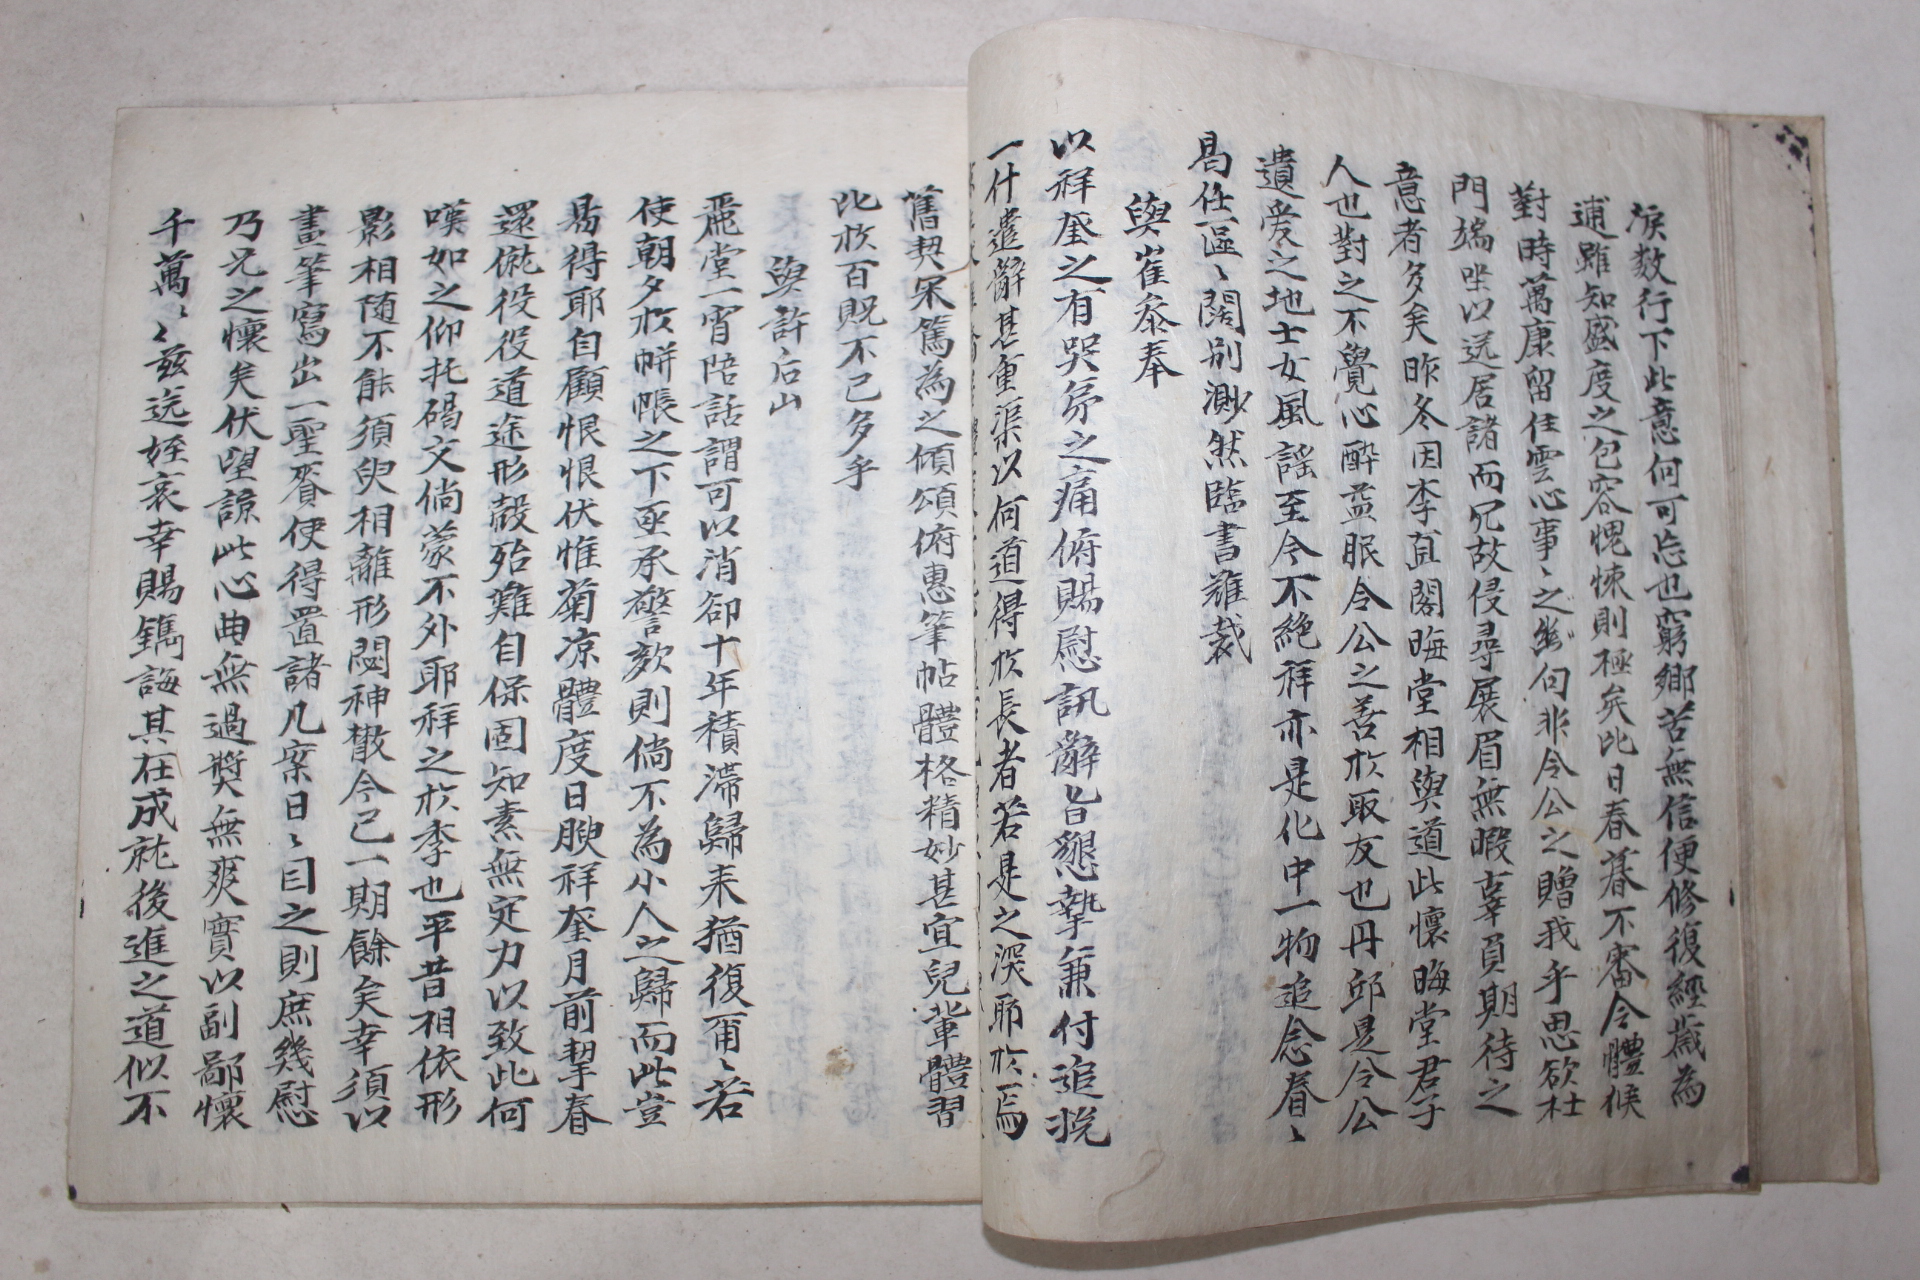 淚数行下此意何可忘也窮鄉苦無信便修復經歲為
逋雖知盛度之包容愧悚則極矣此日春暮不審令體候
對時萬康留住雲心事〻之幽句非令公之贈我乎思欲杜
門端坐以送居諸而冗故侵尋展眉無暇辜負期待之
意者多矣昨冬因李直閣晦堂相與道此懷晦堂君子
人也對之不覺心醉益眠令公之善於取友也丹邱是令公
遺愛之地士女風謠至今不絶拜亦是化中一物追念眷〻
曷任區〻闊別渺然臨書難裁
與崔叅奉
以祥奎之有哭弟之痛俯賜慰訊辭旨懇摯兼付追挽
一什遣辭甚重渠以何道得於長者若是之深耶於焉
舊契宋篤為之傾頌俯惠筆帖體格精妙甚宜兒輩體習
此於百貺不已多乎
與許后山
麗堂一宵陪話謂可以消却十年積滯歸来猶復爾〻若
使朝夕於帡帳之下亟承警欬則倘不為小人之歸而此豈
易得耶自顧恨恨伏惟菊凉體度日腴祥奎月前挈眷
還僦役役道途形殼殆難自保固知素無定力以致此何
嘆如之仰托碣文倘蒙不外耶祥之於李也平昔相依形
影相随不能須臾相離形閟神散今已一期餘矣幸須以
畫筆寫出一聖賚使得置諸几案日〻目之則庶幾慰
乃兄之懷矣伏望諒此心曲無過奬無爽實以副鄙懷
千萬〻玆送姪哀幸賜鐫誨其在成就後進之道似不